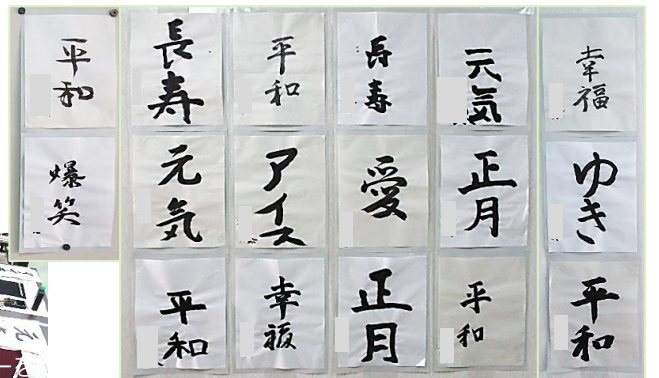 平和
爆笑
長寿
平和
長寿
元気
幸福
元気
アイス
愛
正月
ゆき
平和
幸福
正月
平和
平和